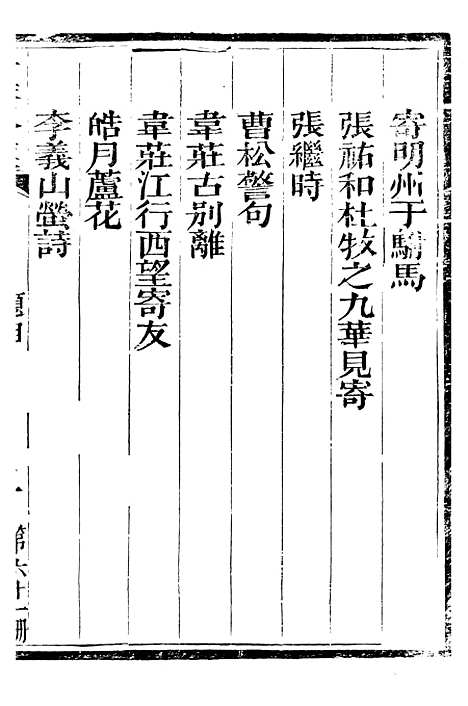 寄明州于駙馬
張祐和杜牧之九華見寄
張繼時
曹松警句
韋莊古別離
韋莊江行西望寄友
皓月蘆花
李義山螢詩
第六十一冊